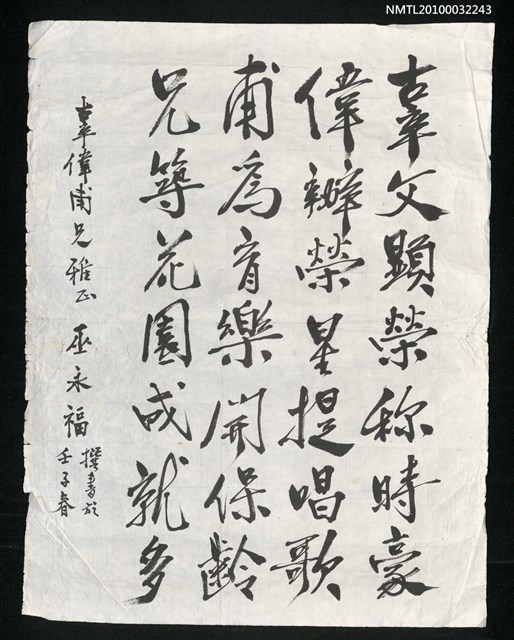 NMTL20100032243
辜文顯榮称時豪
偉辦榮星提唱歌
甫為音樂開保齡
兄築花園成就多
辜偉甫兄雅正 巫永福
撰書於
壬子春